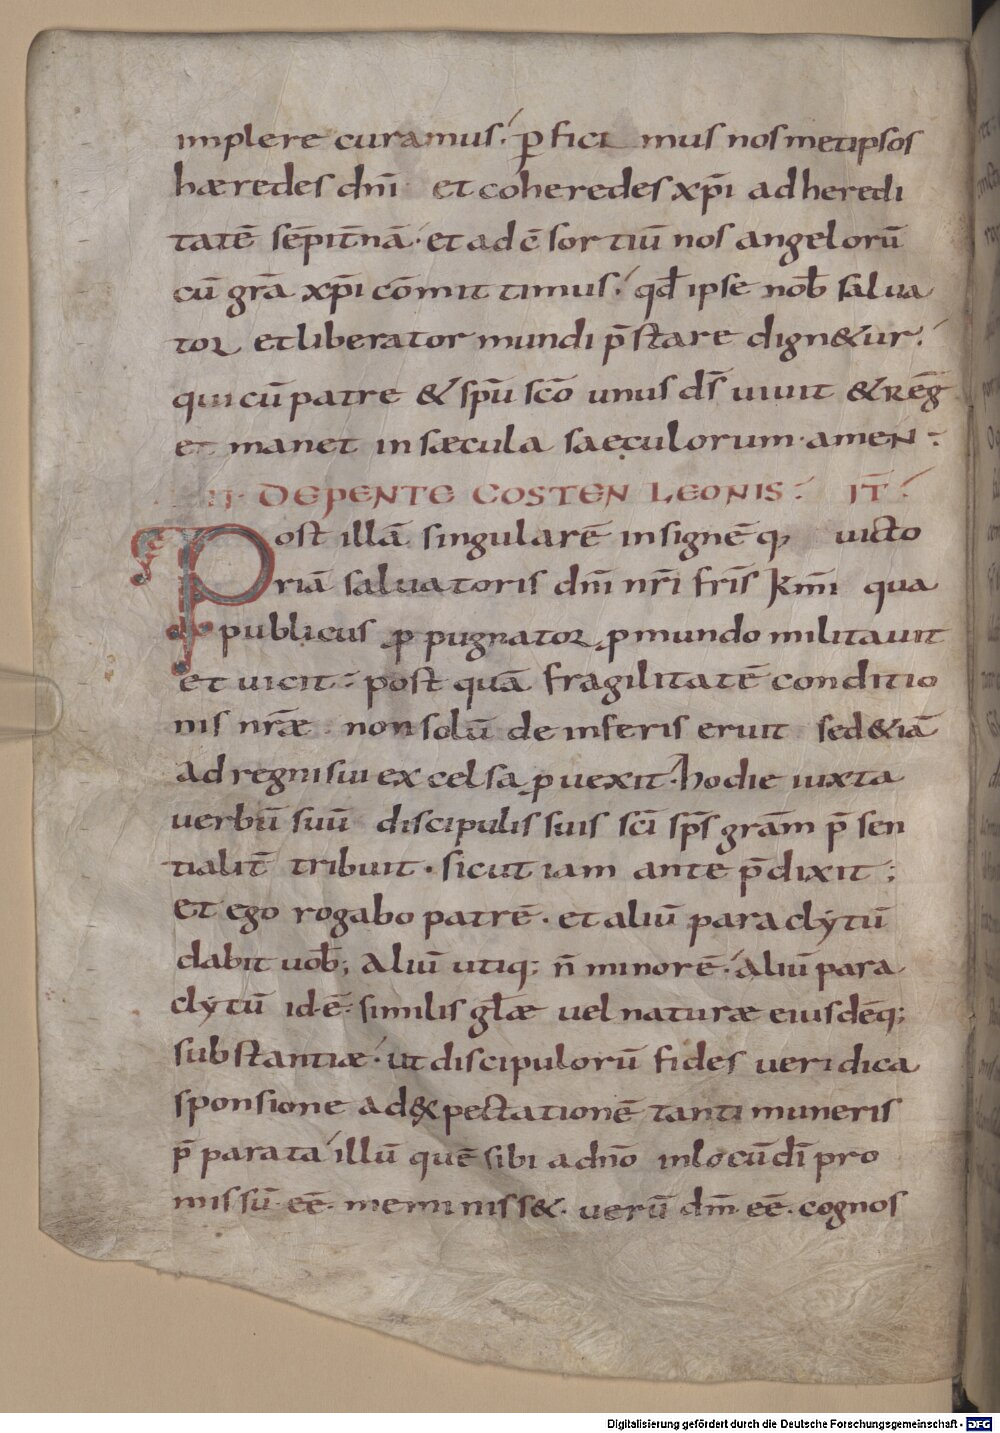 implere curamus. ꝑfici mus nos metipsos
hæredes dn̄i et coheredes xp̄i ad heredi
tatē sēpit̄nā. et ad c̄sortiū nos angelorū
cū gr̄a xp̄i cōmittimus. qd̄ ipse nob̄ salua
tor et liberator mundi p̄stare dign&ur.
qui cū patre & sp̄u sc̄o unus ds̄ uiuit & reḡ
et manet in sæcula saeculorum. amen:
IT DE PENTE COSTEN LEONIS: IT̄.
Post illā singularē insignēq, uicto
riā saluatoris dn̄i nr̄i fr̄s km̄i qua
publicus ꝓpugnator ꝓ mundo militauit
et uicit: post quā fragilitatē conditio
nis nr̄æ non solū de inferis eruit sed &iā
ad regni sui excelsa ꝓuexit. hodie iuxta
uerbū suū discipulis suis sc̄i sp̄s grām p̄sen
tialit̄ tribuit. sicut iam ante p̄dixit;
Et ego rogabo patrē. et aliū paraclytū
dabit uob̄; Aliū utiq; n̄ minorē. Aliū para
clytū id.ē. similis gl̄æ uel naturæ eiusdēq;
substantiæ. ut discipulorū fides ueridica
sponsione ad expectationē tanti muneris
p̄parata illū quē sibi a dn̄o in locū dī pro
missū eē. meminiss&. uerū dm̄ eē. cognos
Digitalisierung gefördert durch die Deutsche Forschungsgemeinschaft - DFG